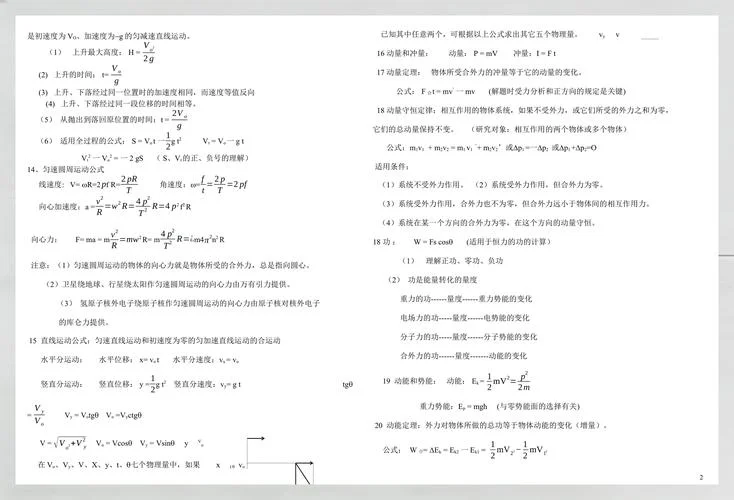 是初速度为 V₀、加速度为−g 的匀减速直线运动。
(1) 上升最大高度: H = Vo²/2g
(2) 上升的时间: t= Vo/g
(3) 上升、下落经过同一位置时的加速度相同,而速度等值反向
(4) 上升、下落经过同一段位移的时间相等。
(5) 从抛出到落回原位置的时间: t = 2Vo/g
(6) 适用全过程的公式: S = Vₒt 一 1/2 g t² Vₜ = Vₒ一 g t
Vₜ² 一 Vₒ² = 一 2 gS ( S、Vₜ的正、负号的理解)
14、匀速圆周运动公式
线速度: V= ωR=2pf R= 2pR/T 角速度: ω= f/t = 2p/T = 2pf
向心加速度: a = v²/R = w² R = 4p²/T² R = 4p² f² R
向心力: F= ma = m v²/R = mw² R= m 4p²/T² R =¿m4π²n² R
注意:(1)匀速圆周运动的物体的向心力就是物体所受的合外力,总是指向圆心。
(2)卫星绕地球、行星绕太阳作匀速圆周运动的向心力由万有引力提供。
(3) 氢原子核外电子绕原子核作匀速圆周运动的向心力由原子核对核外电子
的库仑力提供。
15 直线运动公式:匀速直线运动和初速度为零的匀加速直线运动的合运动
水平分运动: 水平位移: x= vₒt 水平分速度: vₓ = vₒ
竖直分运动: 竖直位移: y = 1/2 g t² 竖直分速度: vᵧ= g t tgθ
= Vy/Vo Vᵧ = Vₒtgθ Vₒ =Vᵧctgθ
V = √(Vo²+Vy²) Vₒ = Vcosθ Vᵧ = Vsinθ y vₒ
在 Vₒ、Vᵧ、V、X、y、t、θ七个物理量中,如果 x )θ vₒ
已知其中任意两个,可根据以上公式求出其它五个物理量。 vᵧ v
16 动量和冲量: 动量: P = mV 冲量: I = F t
17 动量定理: 物体所受合外力的冲量等于它的动量的变化。
公式: F合t = mv' 一 mv (解题时受力分析和正方向的规定是关键)
18 动量守恒定律:相互作用的物体系统,如果不受外力,或它们所受的外力之和为零,
它们的总动量保持不变。 (研究对象:相互作用的两个物体或多个物体)
公式: m₁v₁ + m₂v₂ = m₁ v₁‘+ m₂v₂’或Δp₁ =一Δp₂ 或Δp₁+Δp₂=O
适用条件:
(1)系统不受外力作用。 (2)系统受外力作用,但合外力为零。
(3)系统受外力作用,合外力也不为零,但合外力远小于物体间的相互作用力。
(4)系统在某一个方向的合外力为零,在这个方向的动量守恒。
18 功: W = Fs cosθ (适用于恒力的功的计算)
(1) 理解正功、零功、负功
(2) 功是能量转化的量度
重力的功------量度------重力势能的变化
电场力的功-----量度------电势能的变化
分子力的功-----量度------分子势能的变化
合外力的功------量度-------动能的变化
19 动能和势能: 动能: Eₖ = 1/2 mV² = p²/2m
重力势能: Eₚ = mgh (与零势能面的选择有关)
20 动能定理:外力对物体所做的总功等于物体动能的变化(增量)。
公式: W合= ΔEₖ = Eₖ₂ 一 Eₖ₁ = 1/2 mV₂² − 1/2 mV₁²
2